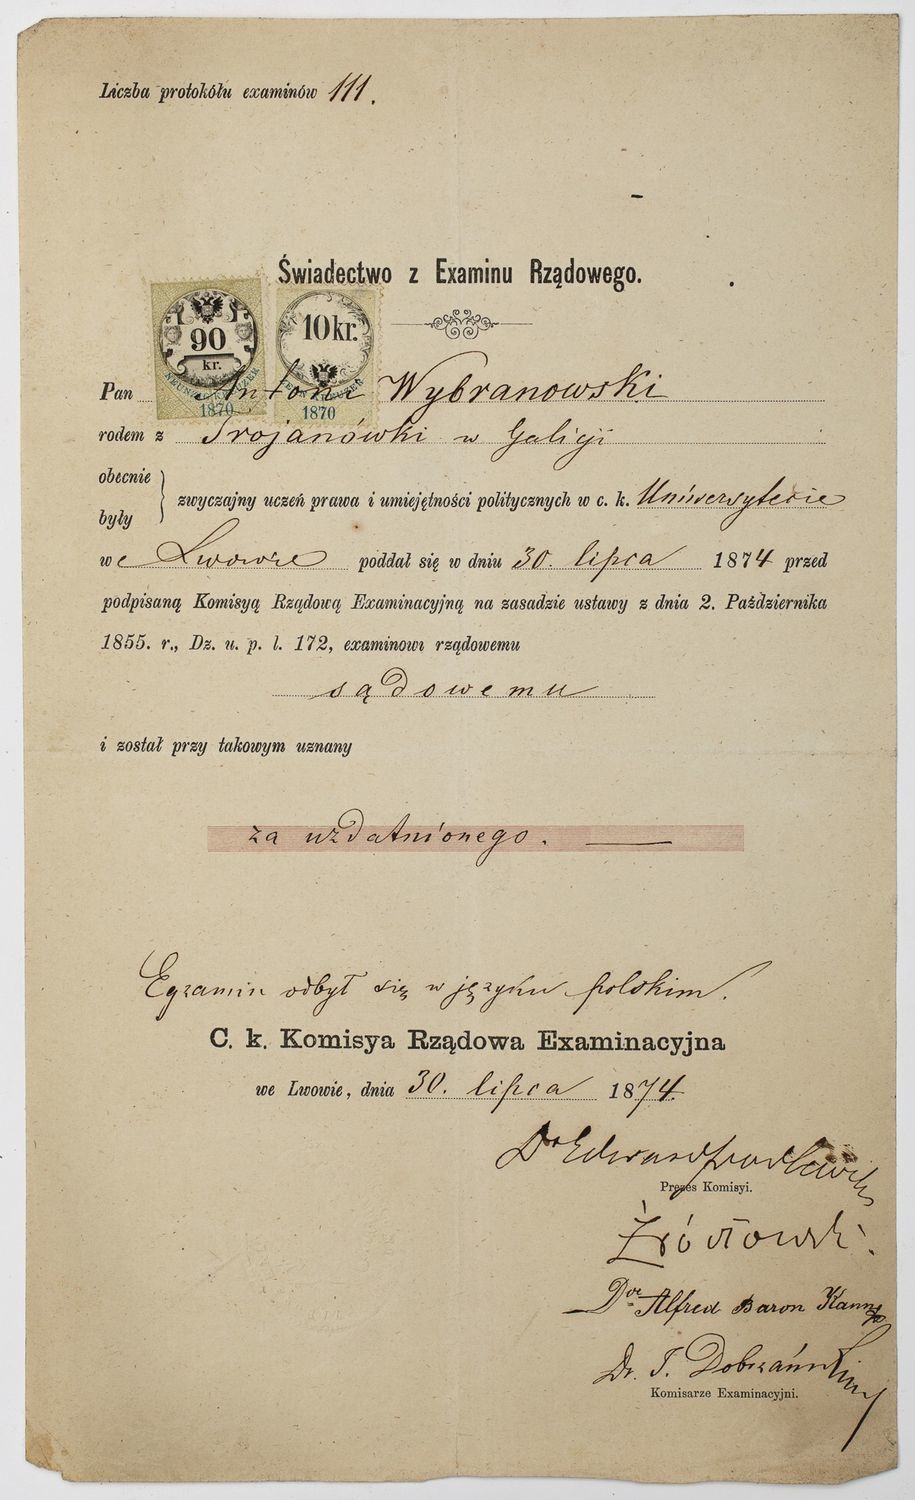 Liczba protokółu examinów 111.
Świadectwo z Examinu Rządowego.
90
kr.
NEUNZIG KREUZER
1870
10 kr.
ZEHN KREUZER
1870
Pan Antoni Wybranowski
rodem z Trojanówki w Galicji
obecnie
były
zwyczajny uczeń prawa i umiejętności politycznych w c. k. Uniwersytecie
we Lwowie poddał się w dniu 30. lipca 1874 przed
podpisaną Komisyą Rządową Examinacyjną na zasadzie ustawy z dnia 2. Października
1855. r., Dz. u. p. l. 172, examinowi rządowemu
sądowemu
i został przy takowym uznany
za uzdatnionego.
Egzamin odbył się w języku polskim.
C. k. Komisya Rządowa Examinacyjna
we Lwowie, dnia 30. lipca 1874.
Dr Edward
Prezes Komisyi.
Źródłowski.
Dor Alfred Baron
Dr. T. Dobrzański
Komisarze Examinacyjni.